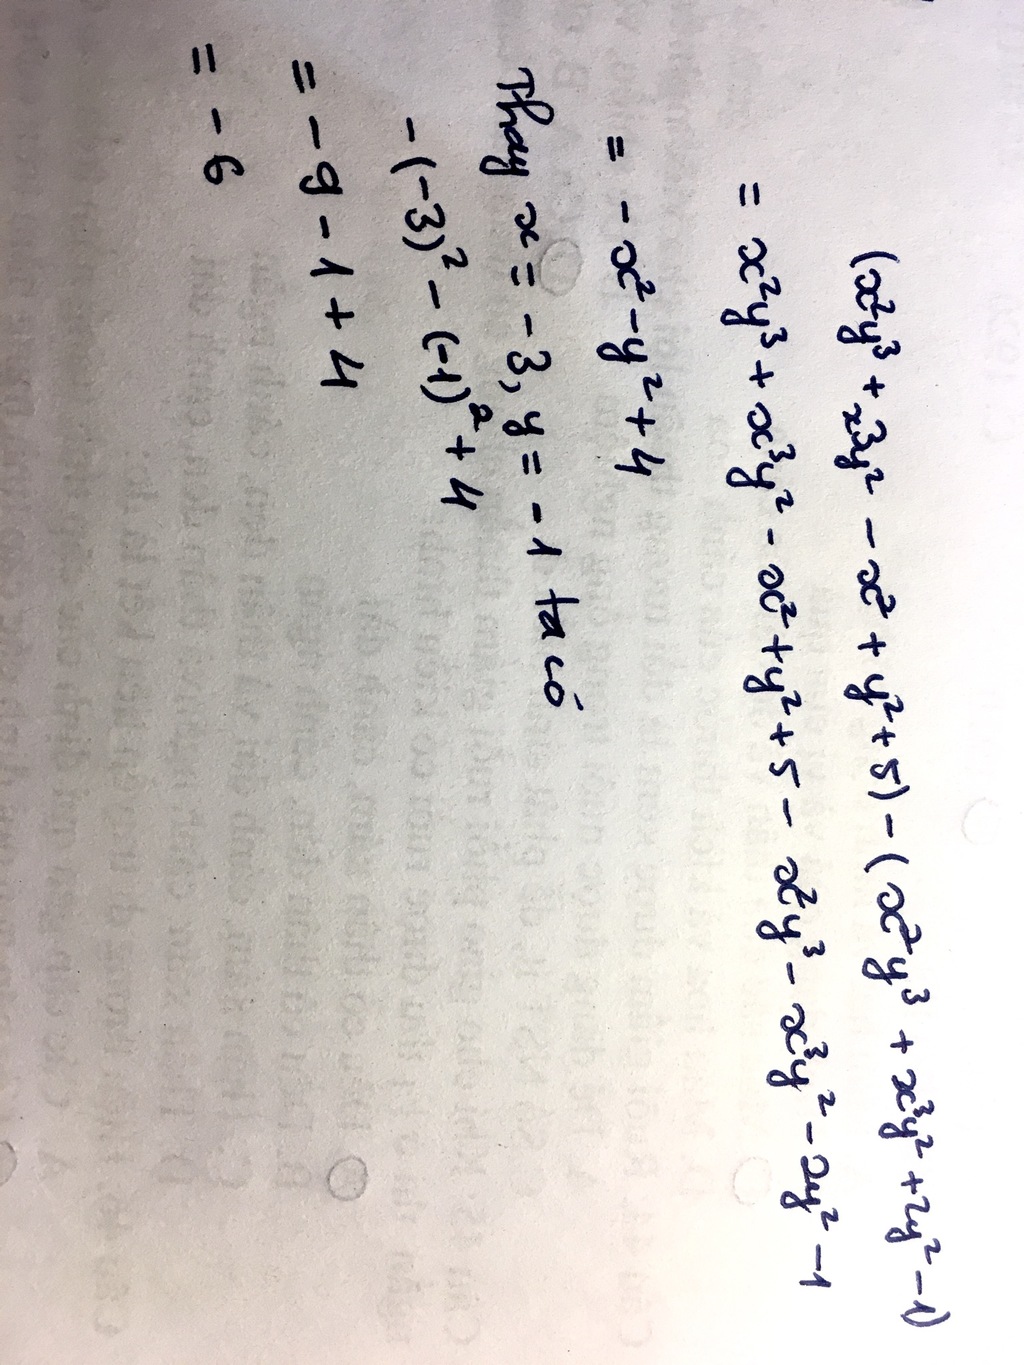 (x²y³ + x³y² - x² + y² + 5) - (x²y³ + x³y² + 2y² - 1)
= x²y³ + x³y² - x² + y² + 5 - x²y³ - x³y² - 2y² - 1
= - x² - y² + 4
Thay x = -3, y = -1 ta có
- (-3)² - (-1)² + 4
= - 9 - 1 + 4
= - 6